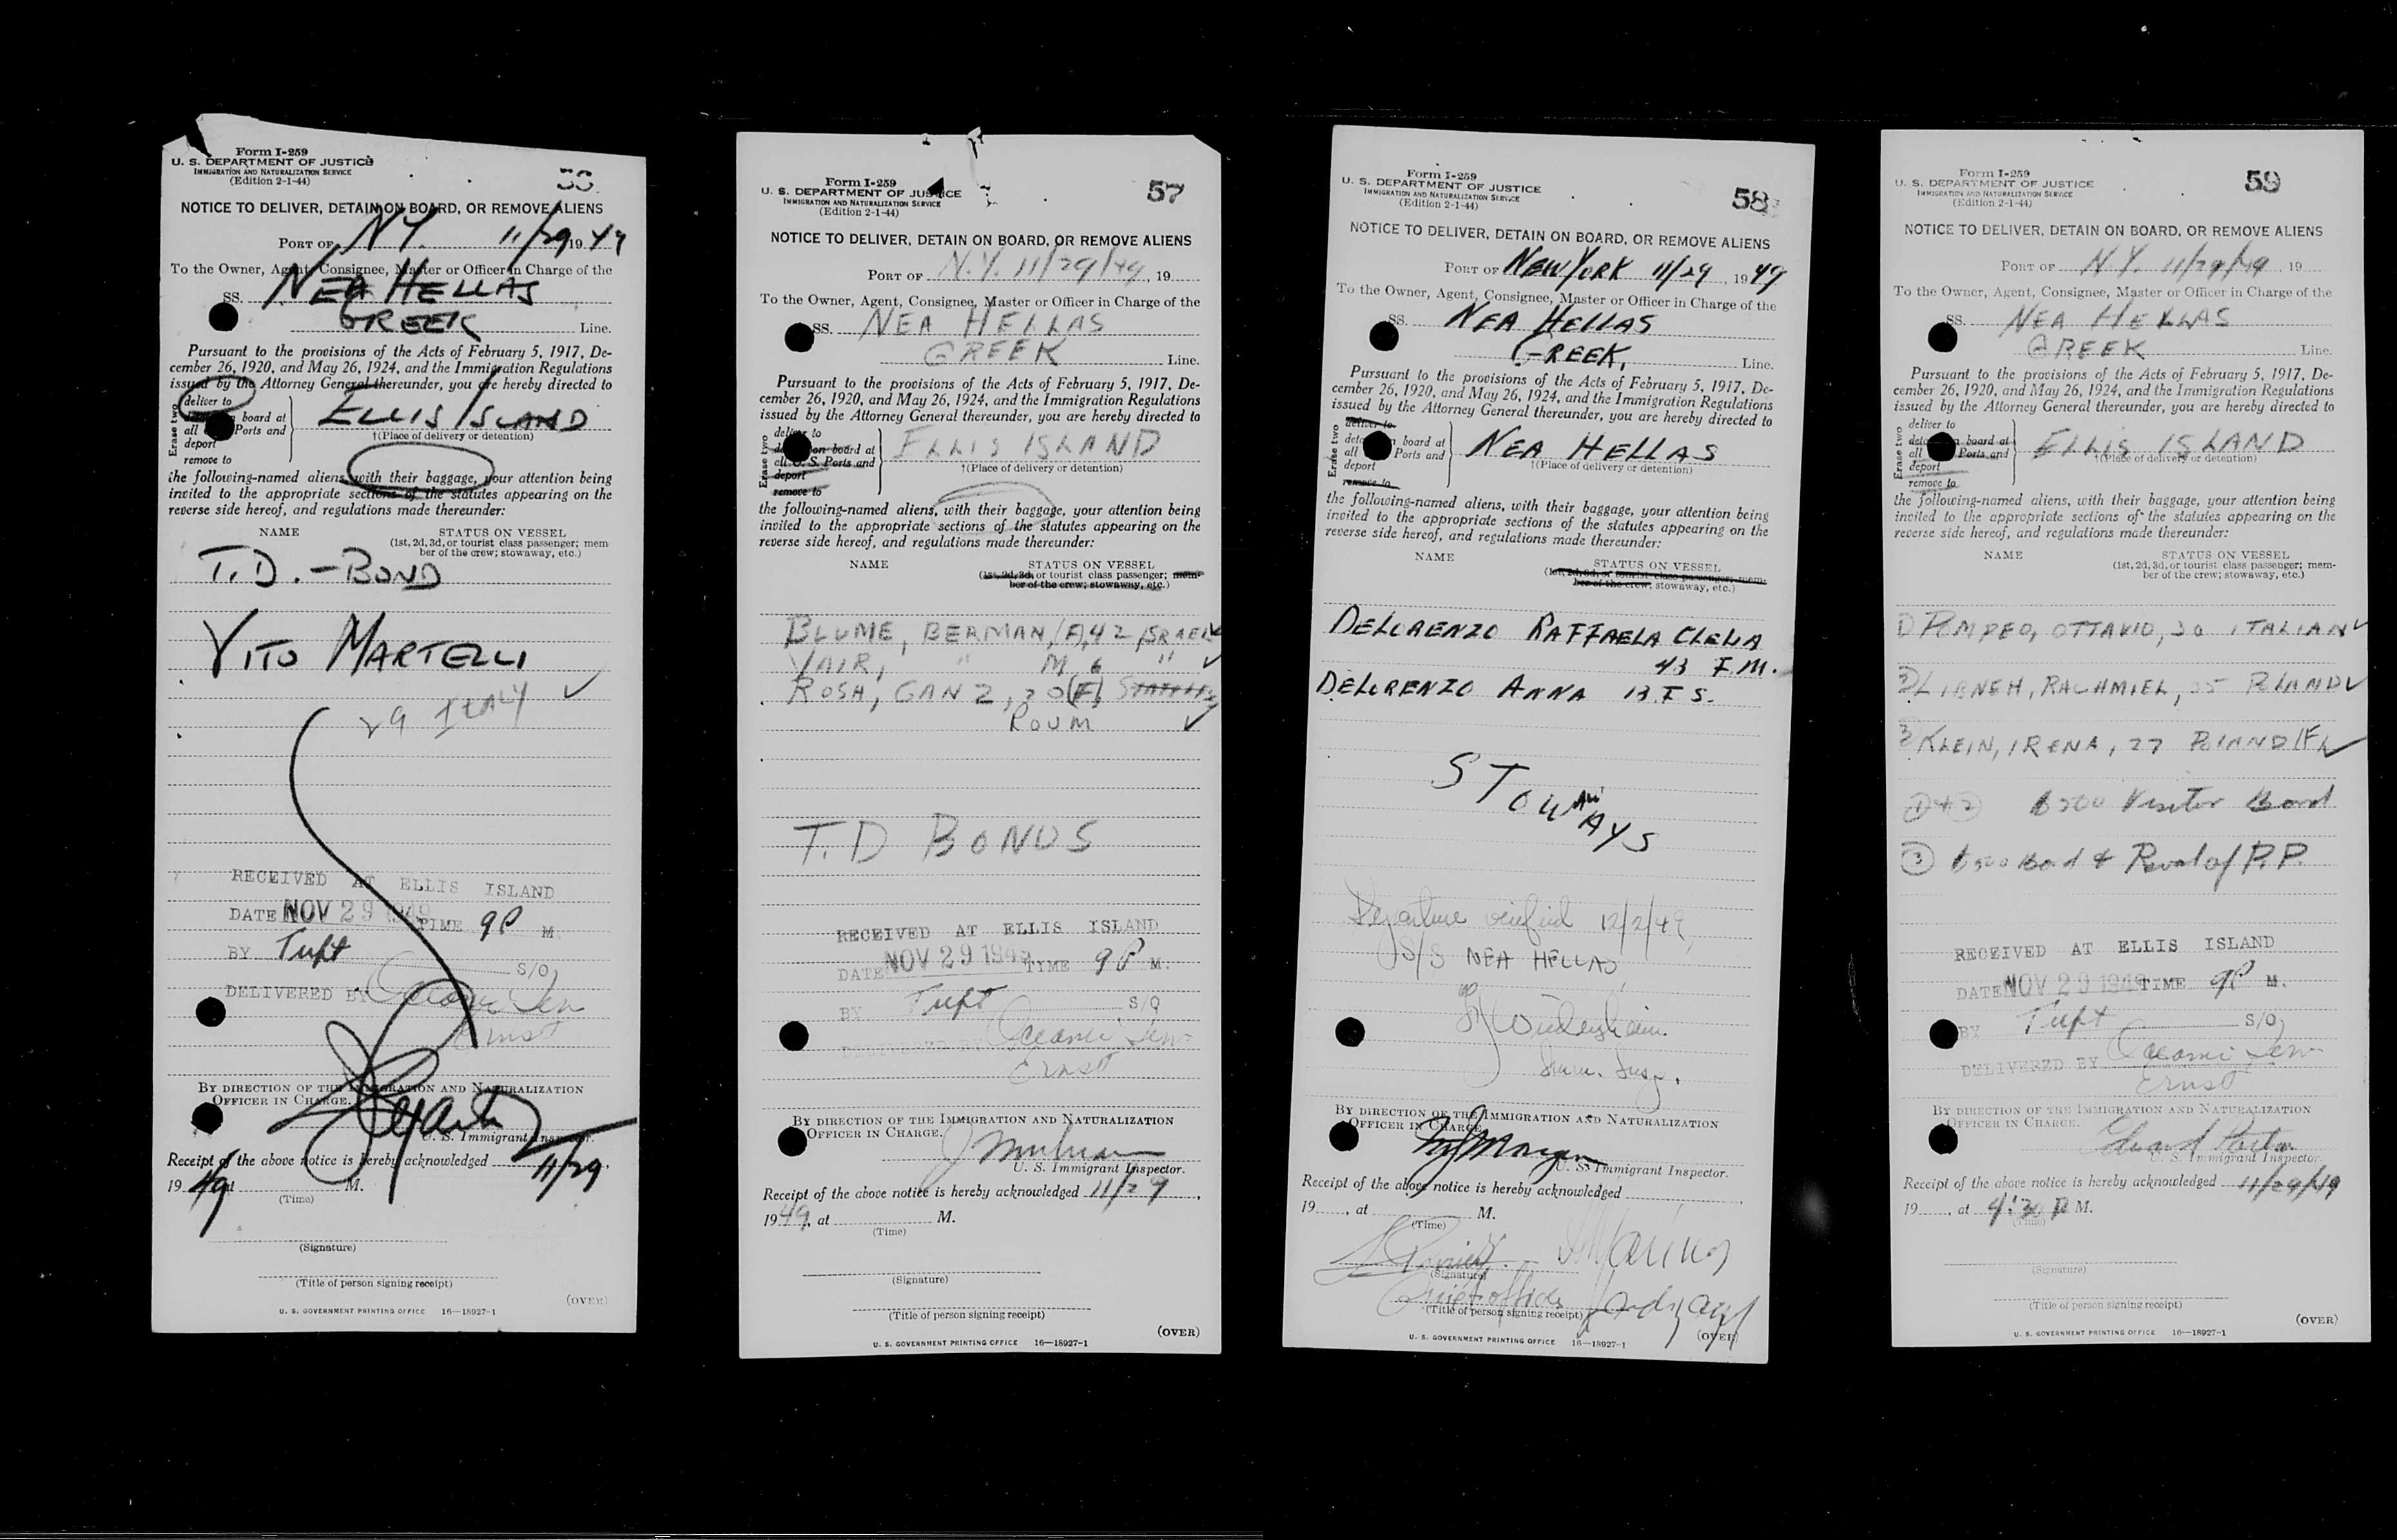 Form I-259
U. S. DEPARTMENT OF JUSTICE
IMMIGRATION AND NATURALIZATION SERVICE
(Edition 2-1-44)
NOTICE TO DELIVER, DETAIN ON BOARD, OR REMOVE ALIENS
PORT OF N.Y. 11/29 1949
To the Owner, Agent, Consignee, Master or Officer in Charge of the
SS. NEA HELLAS
GREEK Line.
Pursuant to the provisions of the Acts of February 5, 1917, De-
cember 26, 1920, and May 26, 1924, and the Immigration Regulations
issued by the Attorney General thereunder, you are hereby directed to
Erase two
deliver to
board at
all Ports and
deport
remove to
ELLIS ISLAND
†(Place of delivery or detention)
the following-named aliens, with their baggage, your attention being
invited to the appropriate sections of the statutes appearing on the
reverse side hereof, and regulations made thereunder:
NAME STATUS ON VESSEL
(1st, 2d, 3d, or tourist class passenger; mem-
ber of the crew; stowaway, etc.)
T.D. - BOND
VITO MARTELLI
29 ITALY ✓
RECEIVED AT ELLIS ISLAND
DATE NOV 29 1949 TIME 9P M.
BY Tuft S/O
DELIVERED BY
Ernst
BY DIRECTION OF THE IMMIGRATION AND NATURALIZATION
OFFICER IN CHARGE.
U. S. Immigrant Inspector.
Receipt of the above notice is hereby acknowledged 11/29,
1949, at M.
(Time)
(Signature)
(Title of person signing receipt)
(OVER)
U. S. GOVERNMENT PRINTING OFFICE 16—18927-1
Form I-259
U. S. DEPARTMENT OF JUSTICE
IMMIGRATION AND NATURALIZATION SERVICE
(Edition 2-1-44)
57
NOTICE TO DELIVER, DETAIN ON BOARD, OR REMOVE ALIENS
PORT OF N.Y. 11/29/49, 19
To the Owner, Agent, Consignee, Master or Officer in Charge of the
SS. NEA HELLAS
GREEK Line.
Pursuant to the provisions of the Acts of February 5, 1917, De-
cember 26, 1920, and May 26, 1924, and the Immigration Regulations
issued by the Attorney General thereunder, you are hereby directed to
Erase two
deliver to
on board at
all U. S. Ports and
deport
remove to
ELLIS ISLAND
†(Place of delivery or detention)
the following-named aliens, with their baggage, your attention being
invited to the appropriate sections of the statutes appearing on the
reverse side hereof, and regulations made thereunder:
NAME STATUS ON VESSEL
(1st, 2d, 3d, or tourist class passenger; mem-
ber of the crew; stowaway, etc.)
BLUME, BERMAN (F) 42 ISRAEL ✓
YAIR, " M 6 " ✓
ROSH, GANZ, 30 (F)
ROUM ✓
T.D BONDS
RECEIVED AT ELLIS ISLAND
DATE NOV 29 1949 TIME 9P M.
BY Tuft S/O
DELIVERED BY
Ernst
BY DIRECTION OF THE IMMIGRATION AND NATURALIZATION
OFFICER IN CHARGE.
U. S. Immigrant Inspector.
Receipt of the above notice is hereby acknowledged 11/29,
1949, at M.
(Time)
(Signature)
(Title of person signing receipt)
(OVER)
U. S. GOVERNMENT PRINTING OFFICE 16—18927-1
Form I-259
U. S. DEPARTMENT OF JUSTICE
IMMIGRATION AND NATURALIZATION SERVICE
(Edition 2-1-44)
58
NOTICE TO DELIVER, DETAIN ON BOARD, OR REMOVE ALIENS
PORT OF NEW YORK 11/29, 1949
To the Owner, Agent, Consignee, Master or Officer in Charge of the
SS. NEA HELLAS
GREEK, Line.
Pursuant to the provisions of the Acts of February 5, 1917, De-
cember 26, 1920, and May 26, 1924, and the Immigration Regulations
issued by the Attorney General thereunder, you are hereby directed to
Erase two
deliver to
board at
all Ports and
deport
remove to
NEA HELLAS
†(Place of delivery or detention)
the following-named aliens, with their baggage, your attention being
invited to the appropriate sections of the statutes appearing on the
reverse side hereof, and regulations made thereunder:
NAME STATUS ON VESSEL
(1st, 2d, 3d, or tourist class passenger; mem-
ber of the crew; stowaway, etc.)
DELORENZO RAFFAELA CLELIA
43 F.M.
DELORENZO ANNA 13. F S.
STOWAWAYS
Departure verified 12/2/49,
S/S NEA HELLAS
Imm. Insp.
BY DIRECTION OF THE IMMIGRATION AND NATURALIZATION
OFFICER IN CHARGE
U. S. Immigrant Inspector.
Receipt of the above notice is hereby acknowledged
19 , at M.
(Time)
(Signature)
(Title of person signing receipt)
(OVER)
U. S. GOVERNMENT PRINTING OFFICE 16—18927-1
Form I-259
U. S. DEPARTMENT OF JUSTICE
IMMIGRATION AND NATURALIZATION SERVICE
(Edition 2-1-44)
59
NOTICE TO DELIVER, DETAIN ON BOARD, OR REMOVE ALIENS
PORT OF N.Y. 11/29/49, 19
To the Owner, Agent, Consignee, Master or Officer in Charge of the
SS. NEA HELLAS
GREEK Line.
Pursuant to the provisions of the Acts of February 5, 1917, De-
cember 26, 1920, and May 26, 1924, and the Immigration Regulations
issued by the Attorney General thereunder, you are hereby directed to
Erase two
deliver to
board at
all Ports and
deport
remove to
ELLIS ISLAND
†(Place of delivery or detention)
the following-named aliens, with their baggage, your attention being
invited to the appropriate sections of the statutes appearing on the
reverse side hereof, and regulations made thereunder:
NAME STATUS ON VESSEL
(1st, 2d, 3d, or tourist class passenger; mem-
ber of the crew; stowaway, etc.)
POMPEO, OTTAVIO, 30 ITALIAN ✓
RACHMIEL, 35 POLAND ✓
KLEIN, IRENA, 27 POLAND (F) ✓
1 + 2 $500 Visitor Bond
3 $500 Bond & of P.P.
RECEIVED AT ELLIS ISLAND
DATE NOV 29 1949 TIME 9P M.
BY Tuft S/O
DELIVERED BY
Ernst
BY DIRECTION OF THE IMMIGRATION AND NATURALIZATION
OFFICER IN CHARGE.
Edward
U. S. Immigrant Inspector.
Receipt of the above notice is hereby acknowledged 11/29/49
19 , at 4:30 P M.
(Time)
(Signature)
(Title of person signing receipt)
(OVER)
U. S. GOVERNMENT PRINTING OFFICE 16—18927-1